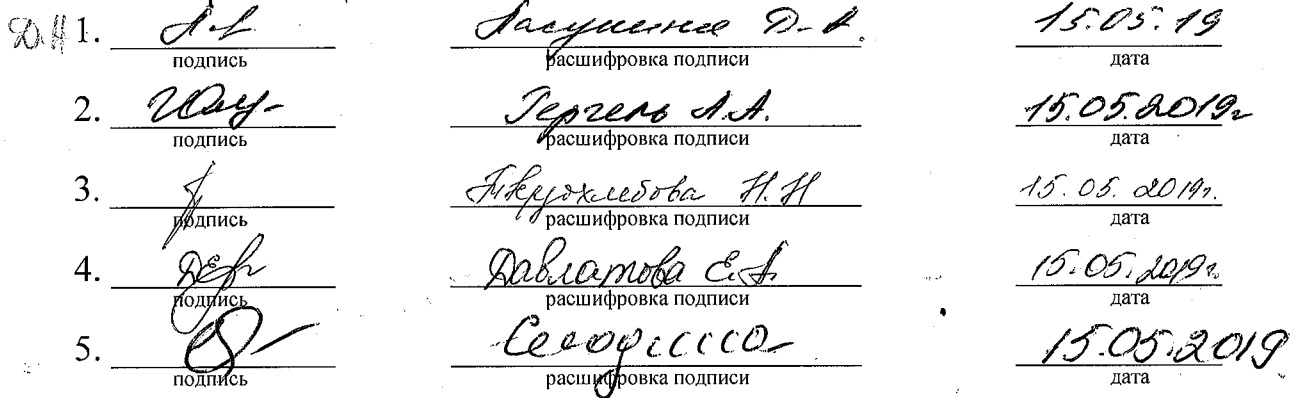 Д.Н 1. Пасушина Д.А. 15.05.19
подпись расшифровка подписи дата
2. Гергель А.А. 15.05.2019г
подпись расшифровка подписи дата
3. Н.Н 15.05.2019г.
подпись расшифровка подписи дата
4. Давлатова Е.А. 15.05.2019г.
подпись расшифровка подписи дата
5. 15.05.2019
подпись расшифровка подписи дата